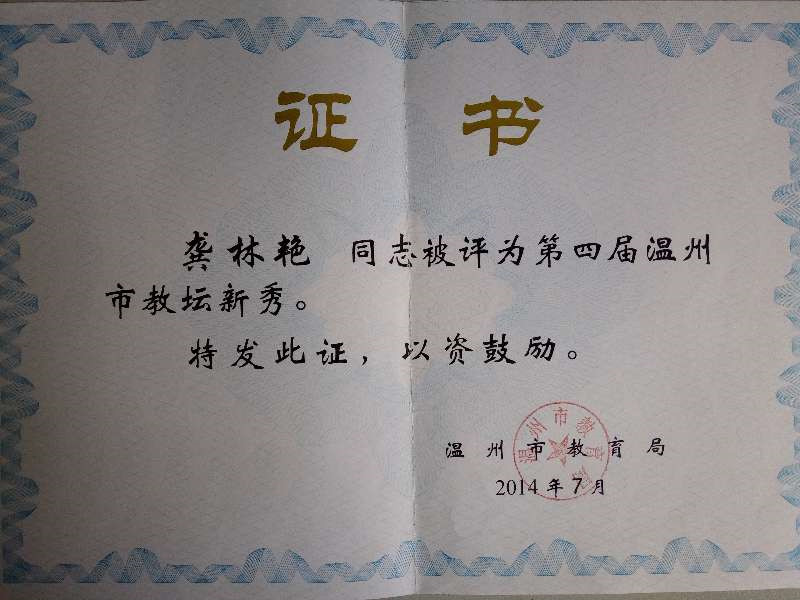 证书
龚林艳 同志被评为第四届温州
市教坛新秀。
特发此证，以资鼓励。
温州市教育局
温州市教育局
2014年7月